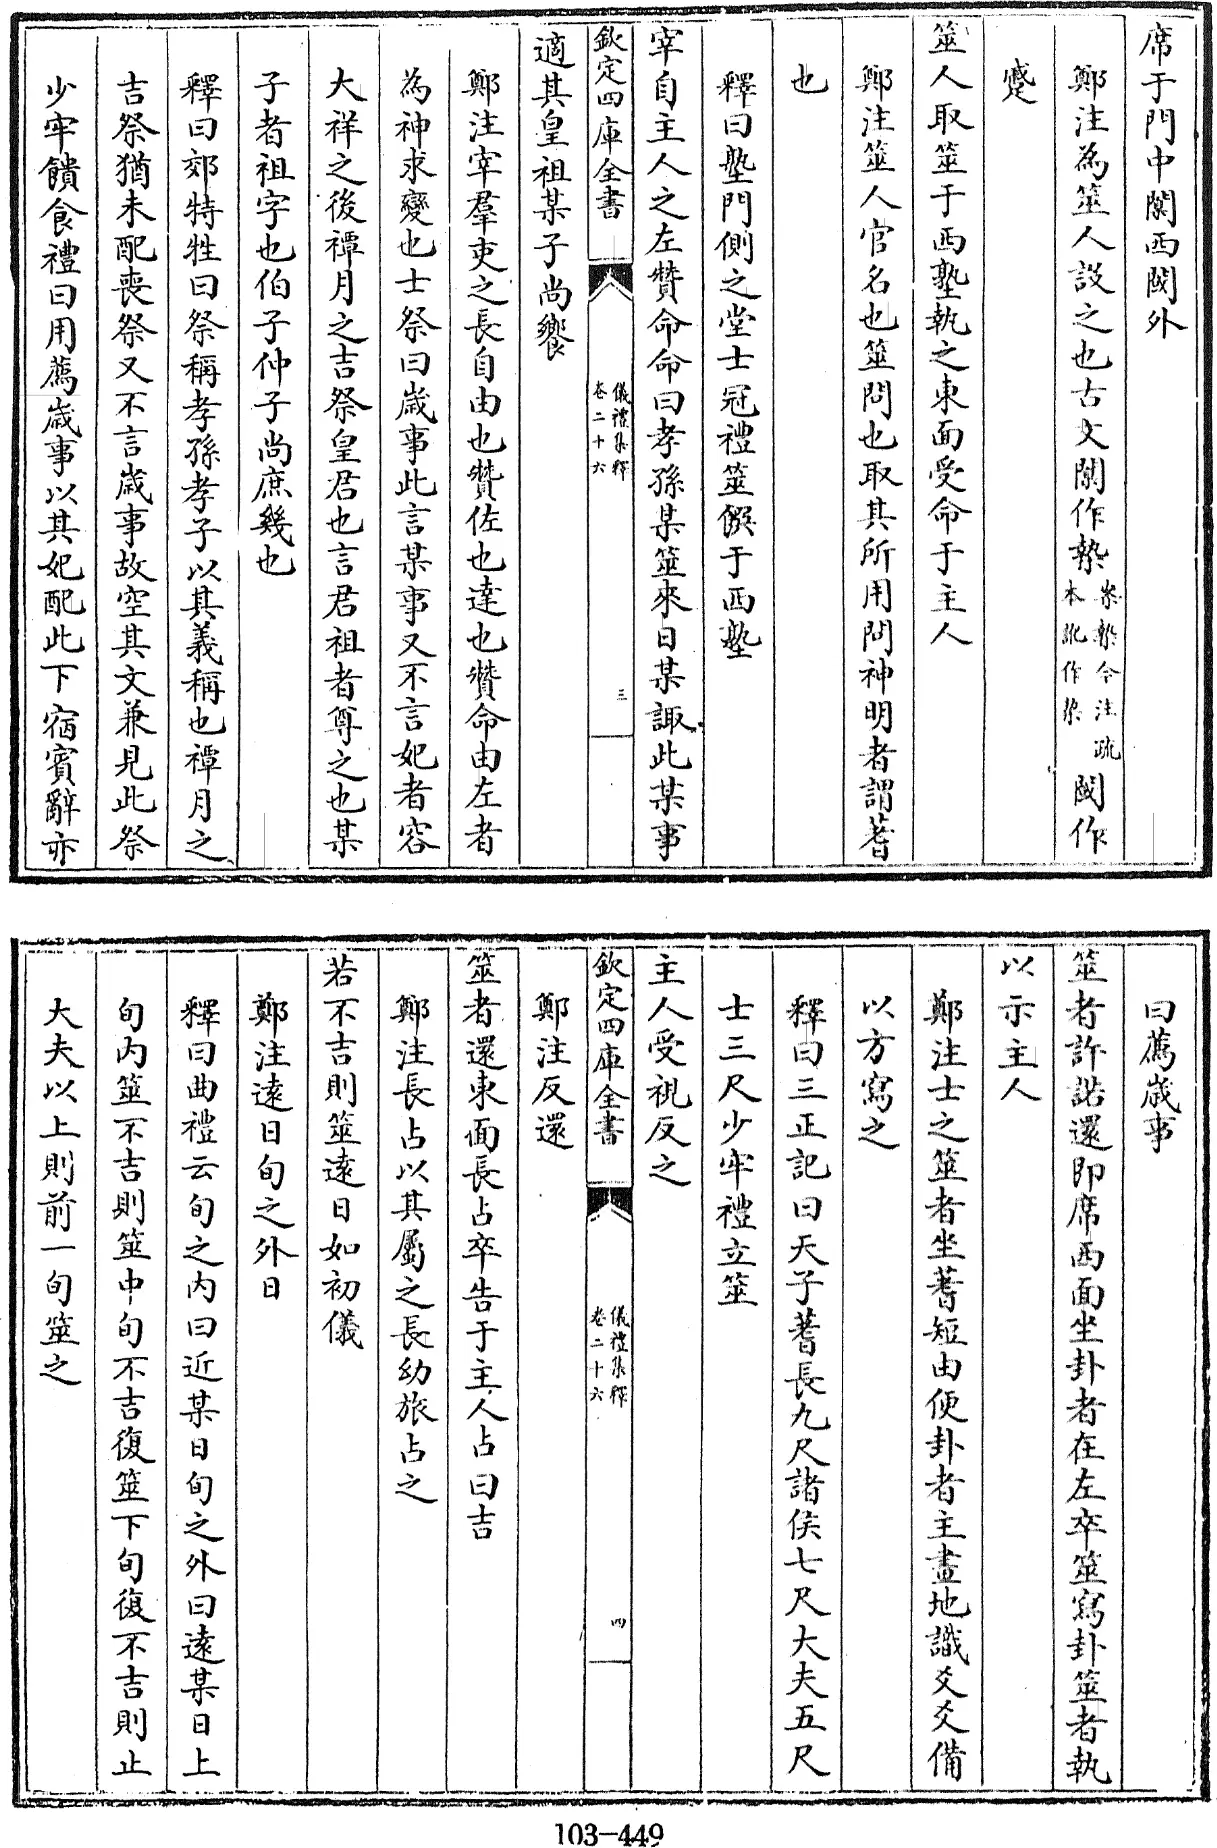 席于門中闑西閾外
鄭注為筮人設之也古文闑作槷案槷今注疏本訛作槷閾作
蹙
筮人取筮于西塾執之東面受命于主人
鄭注筮人官名也筮問也取其所用問神明者謂蓍
也
釋曰塾門側之堂士冠禮筮饌于西塾
宰自主人之左贊命命曰孝孫某筮來日某諏此某事
欽定四庫全書
儀禮集釋
卷二十六
三
適其皇祖某子尚饗
鄭注宰羣吏之長自由也贊佐也達也贊命由左者
為神求變也士祭曰歲事此言某事又不言妃者容
大祥之後禫月之吉祭皇君也言君祖者尊之也某
子者祖字也伯子仲子尚庶幾也
釋曰郊特牲曰祭稱孝孫孝子以其義稱也禫月之
吉祭猶未配喪祭又不言歲事故空其文兼見此祭
少牢饋食禮曰用薦歲事以其妃配此下宿賓辭亦
曰薦歲事
筮者許諾還即席西面坐卦者在左卒筮寫卦筮者執
以示主人
鄭注士之筮者坐蓍短由便卦者主畫地識爻爻備
以方寫之
釋曰三正記曰天子蓍長九尺諸侯七尺大夫五尺
士三尺少牢禮立筮
主人受視反之
欽定四庫全書
儀禮集釋
卷二十六
四
鄭注反還
筮者還東面長占卒告于主人占曰吉
鄭注長占以其屬之長幼旅占之
若不吉則筮遠日如初儀
鄭注遠日旬之外日
釋曰曲禮云旬之內曰近某日旬之外曰遠某日上
旬內筮不吉則筮中旬不吉復筮下旬復不吉則止
大夫以上則前一旬筮之
103-449